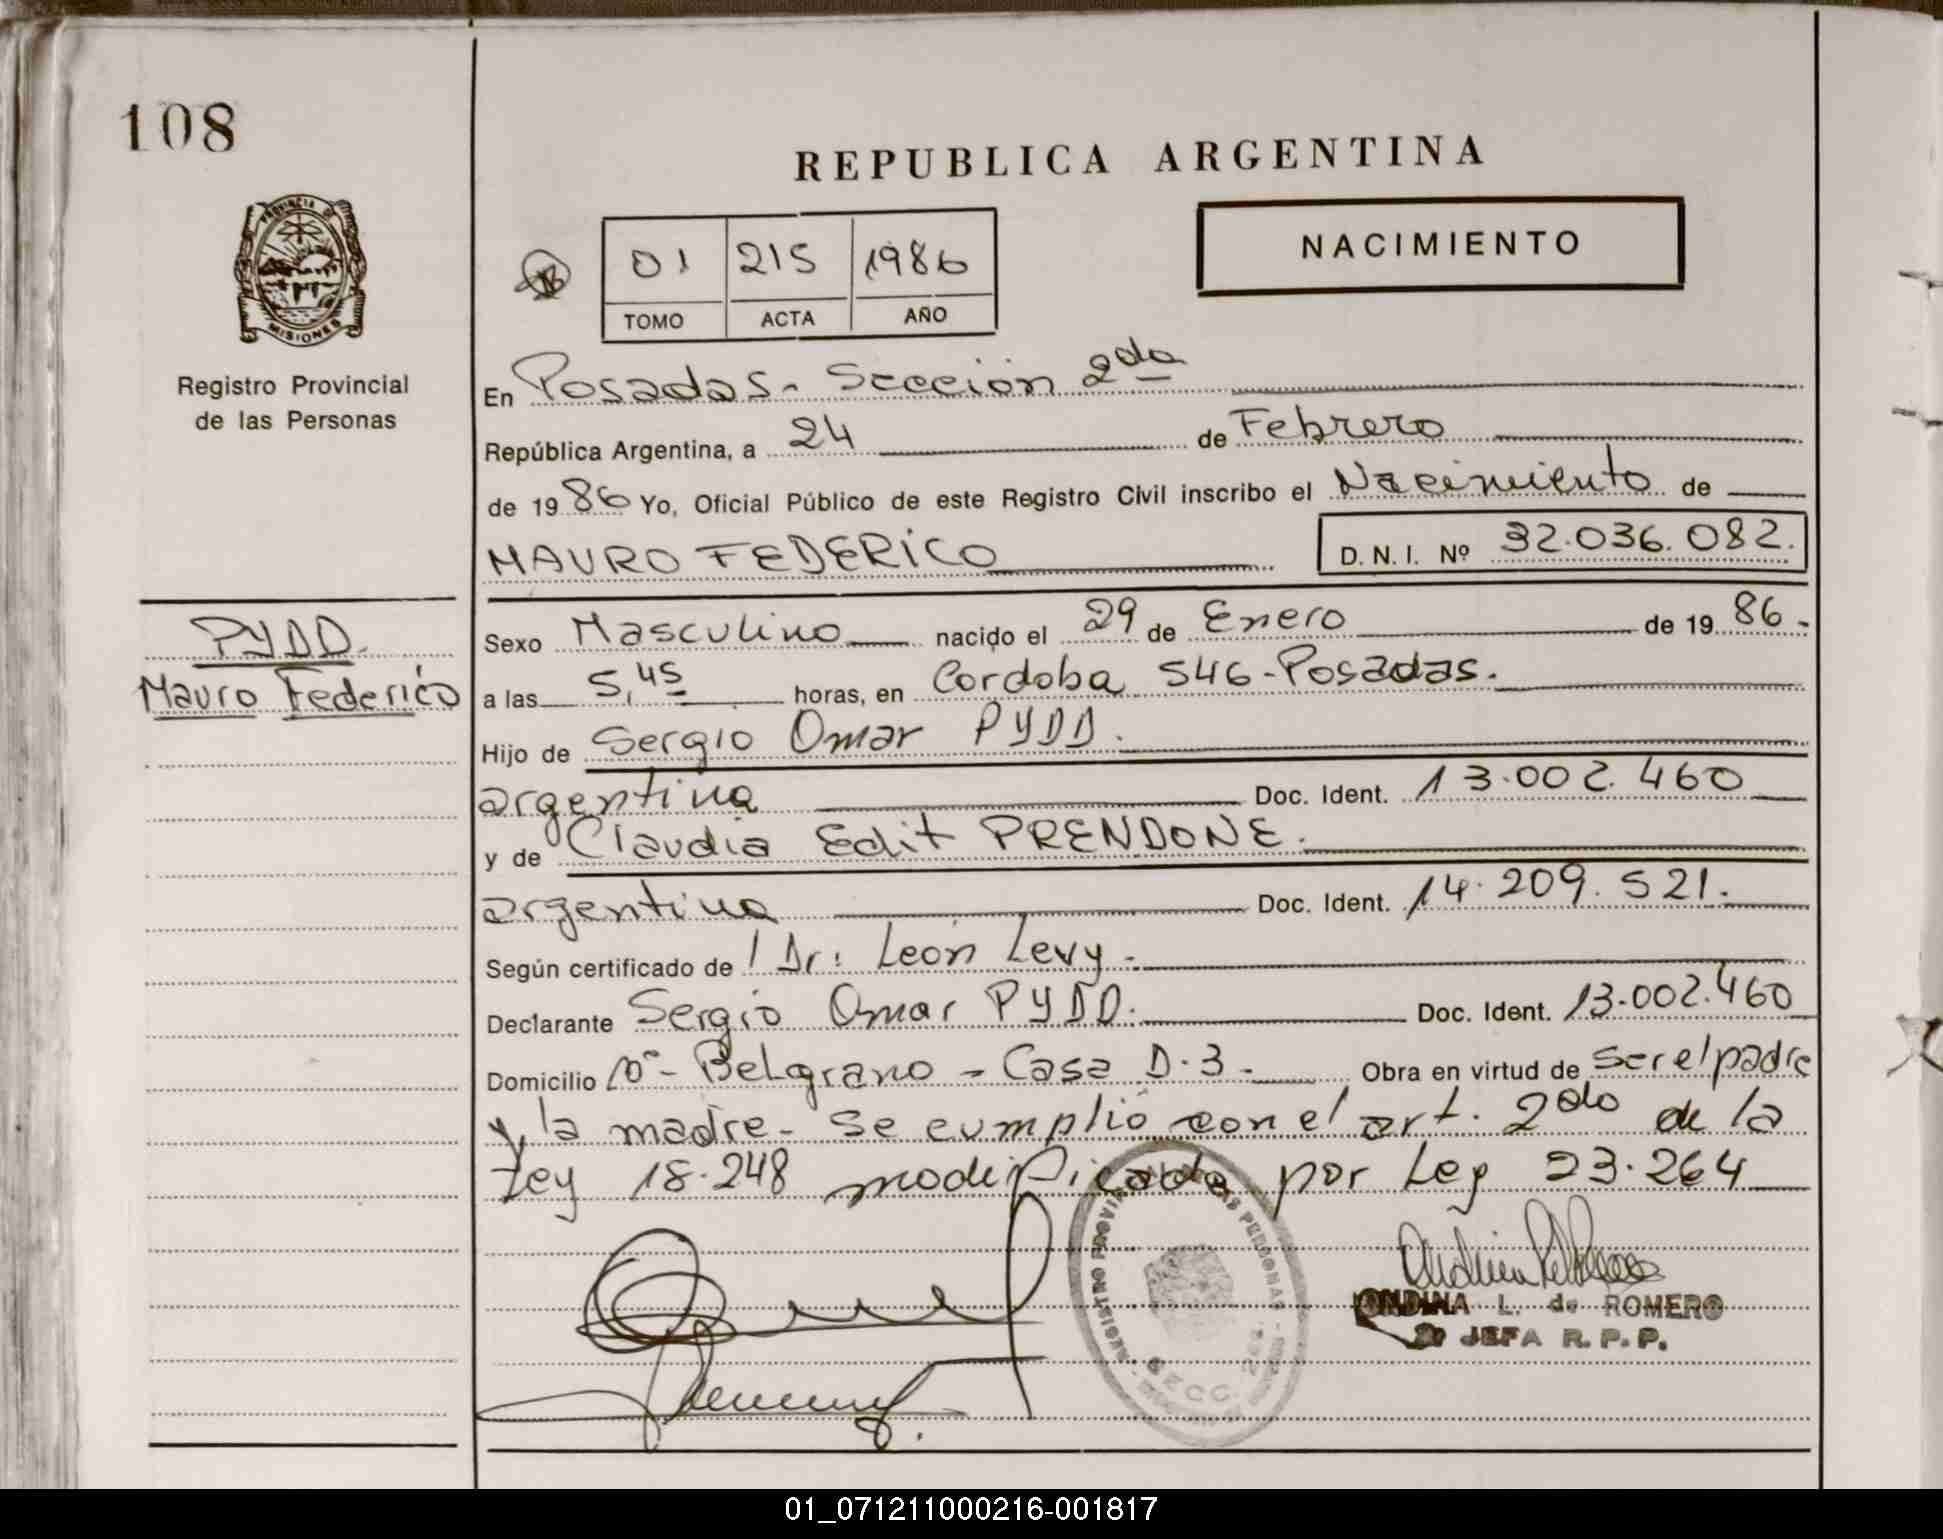 108
REPUBLICA ARGENTINA
PROVINCIA DE
MISIONES
Registro Provincial
de las Personas
01 215 1986
TOMO ACTA AÑO
NACIMIENTO
En Posadas - Sección 2da
República Argentina, a 24 de Febrero
de 19 86 Yo, Oficial Público de este Registro Civil inscribo el Nacimiento de
MAURO FEDERICO D. N. I. Nº 32.036.082.
PYDD.
Mauro Federico
Sexo Masculino nacido el 29 de Enero de 19 86.-
a las 5,45 horas, en Cordoba 546 - Posadas.
Hijo de Sergio Omar PYDD.
argentina Doc. Ident. 13.002.460
y de Claudia Edit PRENDONE.
argentina Doc. Ident. 14.209.521.
Según certificado de l Dr: León Levy.-
Declarante Sergio Omar PYDD. Doc. Ident. 13.002.460
Domicilio Bº - Belgrano - Casa D.3 - Obra en virtud de ser el padre
y la madre - Se cumplió con el art. 2do de la
Ley 18.248 modificada por Ley 23.264
REGISTRO PROVINCIAL DE LAS PERSONAS
SECC. 2da.
ONDINA L. de ROMERO
JEFA R. P. P.
01_071211000216-001817